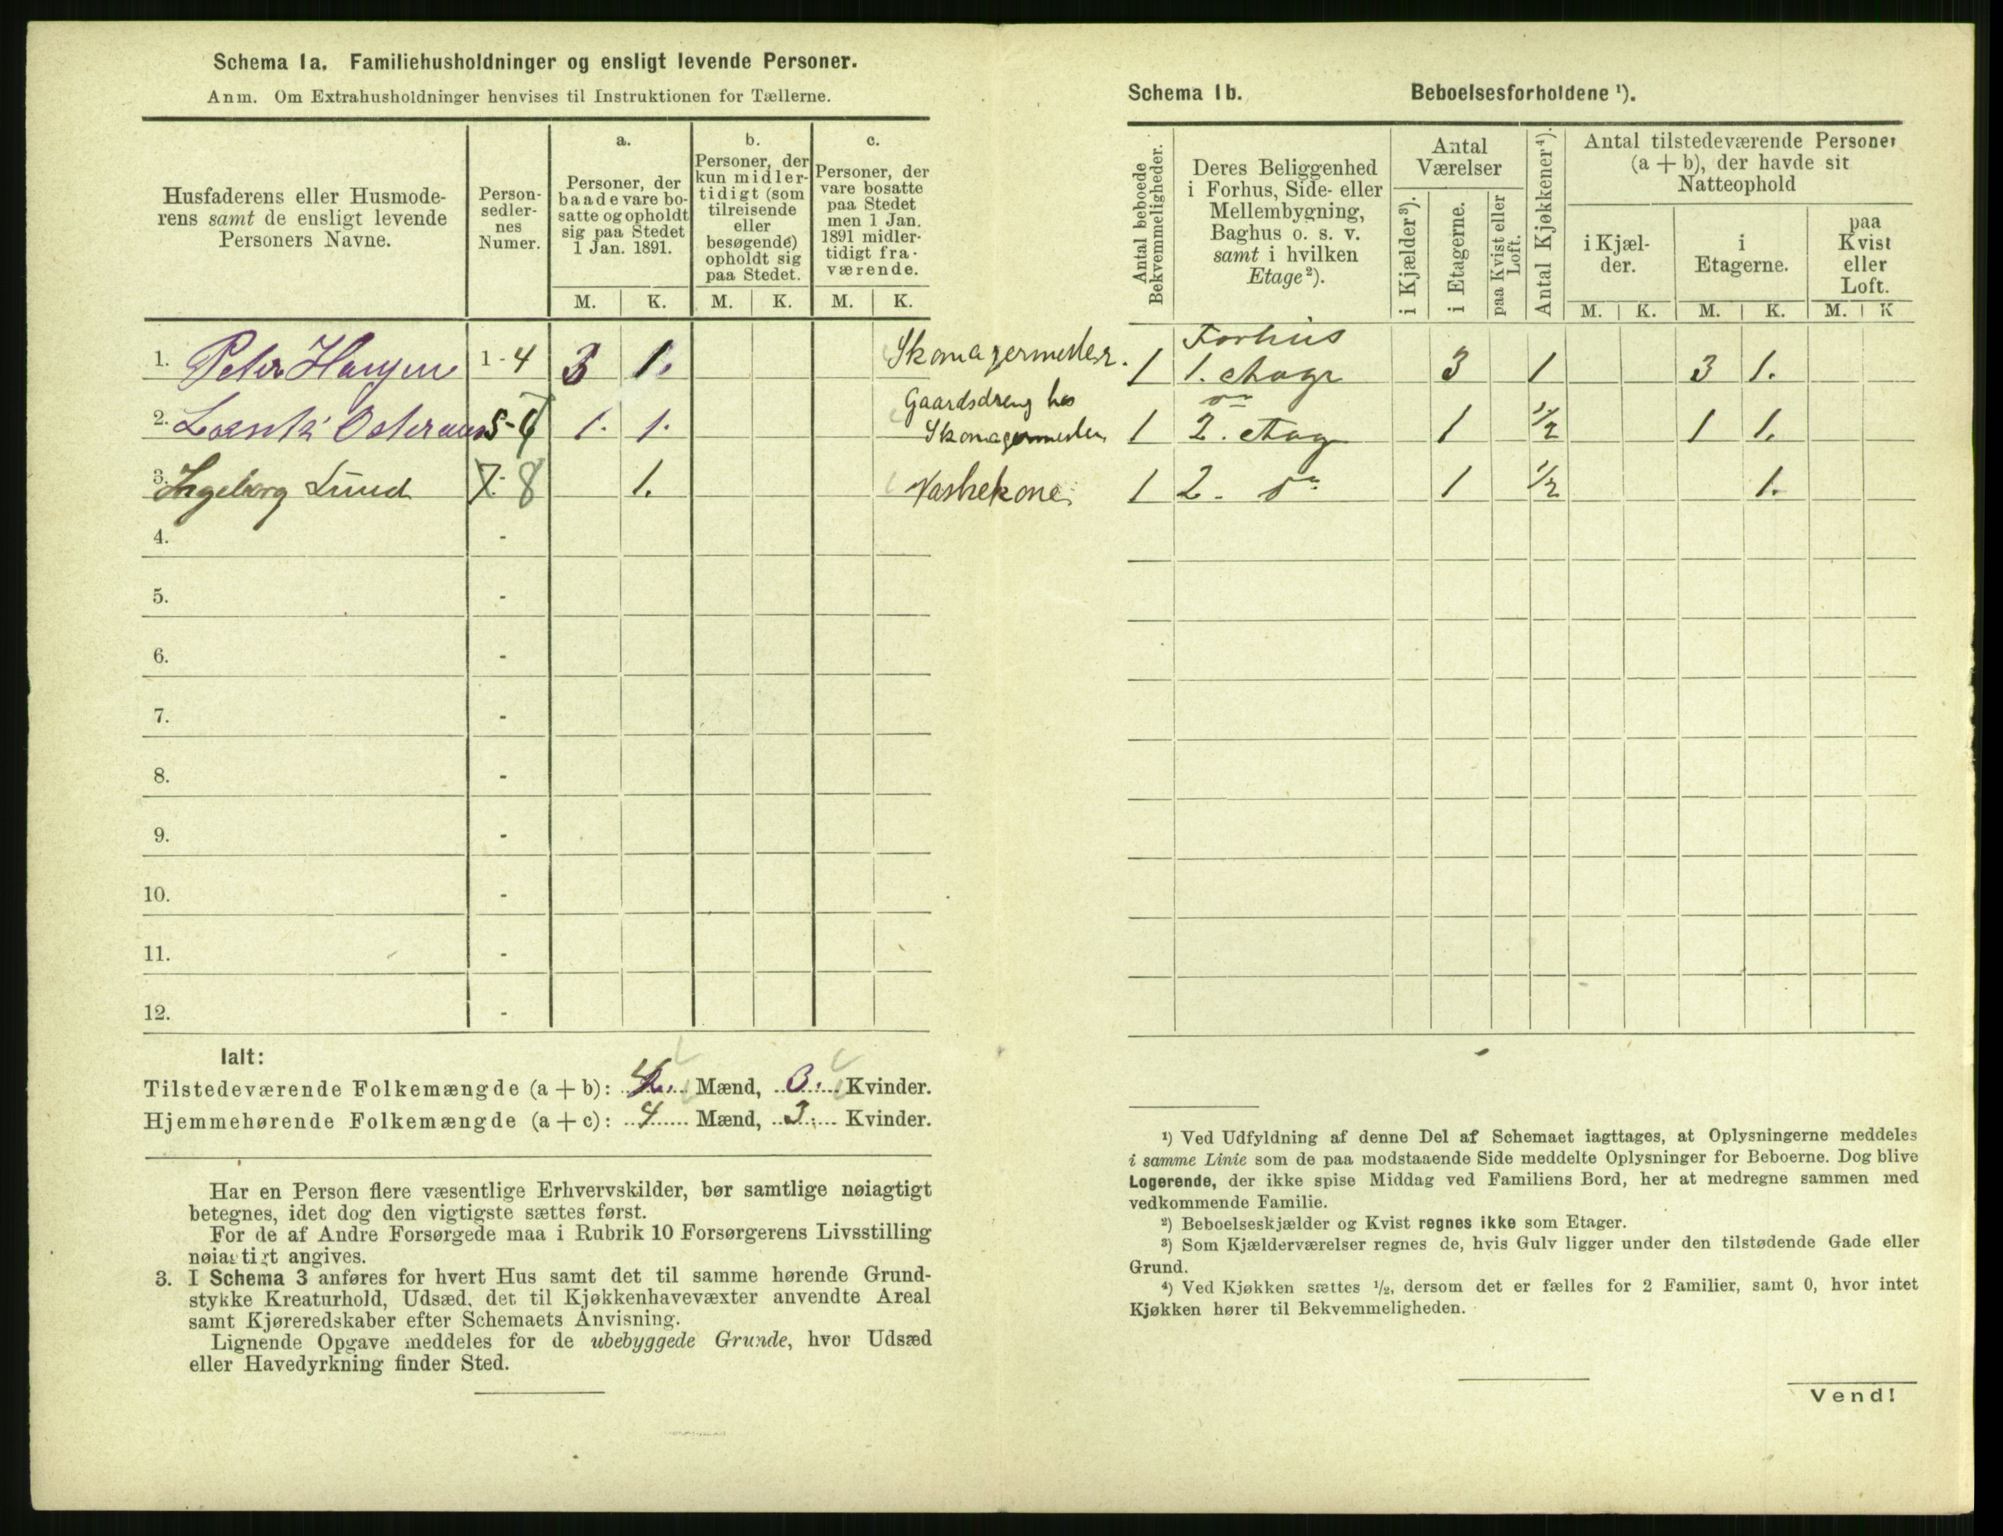 Schema 1a. Familiehusholdninger og ensligt levende Personer.
Anm. Om Extrahusholdninger henvises til Instruktionen for Tællerne.
Husfaderens eller Husmode-
rens samt de ensligt levende
Personers Navne.
Person-
sedler-
nes
Numer.
a.
Personer, der
baade vare bo-
satte og opholdt
sig paa Stedet
1 Jan. 1891.
b.
Personer, der
kun midler-
tidigt (som
tilreisende
eller
besøgende)
opholdt sig
paa Stedet.
c.
Personer, der
vare bosatte
paa Stedet
men 1 Jan.
1891 midler-
tidigt fra-
værende.
M. K. M. K. M. K.
1. Peter Hansen 1-4 3 1. Skomagermester.
2. 5-6 1. 1. Gaardsdreng hos
Skomagermester
3. Ingeborg Lund 7-8 1. Vaskekone
4. -
5. -
6. -
7. -
8. -
9. -
10. -
11. -
12. -
Ialt:
Tilstedeværende Folkemængde (a + b): 4 Mænd, 3. Kvinder.
Hjemmehørende Folkemængde (a + c): 4 Mænd, 3. Kvinder.
Har en Person flere væsentlige Erhvervskilder, bør samtlige nøiagtigt
betegnes, idet dog den vigtigste sættes først.
For de af Andre Forsørgede maa i Rubrik 10 Forsørgerens Livsstilling
nøiagtigt angives.
3. I Schema 3 anføres for hvert Hus samt det til samme hørende Grund-
stykke Kreaturhold, Udsæd, det til Kjøkkenhavevæxter anvendte Areal
samt Kjøreredskaber efter Schemaets Anvisning.
Lignende Opgave meddeles for de ubebyggede Grunde, hvor Udsæd
eller Havedyrkning finder Sted.
Schema 1b. Beboelsesforholdene ¹).
Antal beboede
Bekvemmeligheder.
Deres Beliggenhed
i Forhus, Side- eller
Mellembygning,
Baghus o. s. v.
samt i hvilken
Etage²).
Antal
Værelser
i Kjælder³).
i Etagerne.
paa Kvist eller
Loft.
Antal Kjøkkener⁴).
Antal tilstedeværende Personer
(a + b), der havde sit
Natteophold
i Kjæl-
der.
i
Etagerne.
paa
Kvist
eller
Loft.
M. K. M. K. M. K
Forhus
1 1. Etage 3 1 3 1.
do
1 2. Etag 1 1/2 1 1.
1 2. do 1 1/2 1.
¹) Ved Udfyldning af denne Del af Schemaet iagttages, at Oplysningerne meddeles
i samme Linie som de paa modstaaende Side meddelte Oplysninger for Beboerne. Dog blive
Logerende, der ikke spise Middag ved Familiens Bord, her at medregne sammen med
vedkommende Familie.
²) Beboelseskjælder og Kvist regnes ikke som Etager.
³) Som Kjælderværelser regnes de, hvis Gulv ligger under den tilstødende Gade eller
Grund.
⁴) Ved Kjøkken sættes ½, dersom det er fælles for 2 Familier, samt 0, hvor intet
Kjøkken hører til Bekvemmeligheden.
Vend!